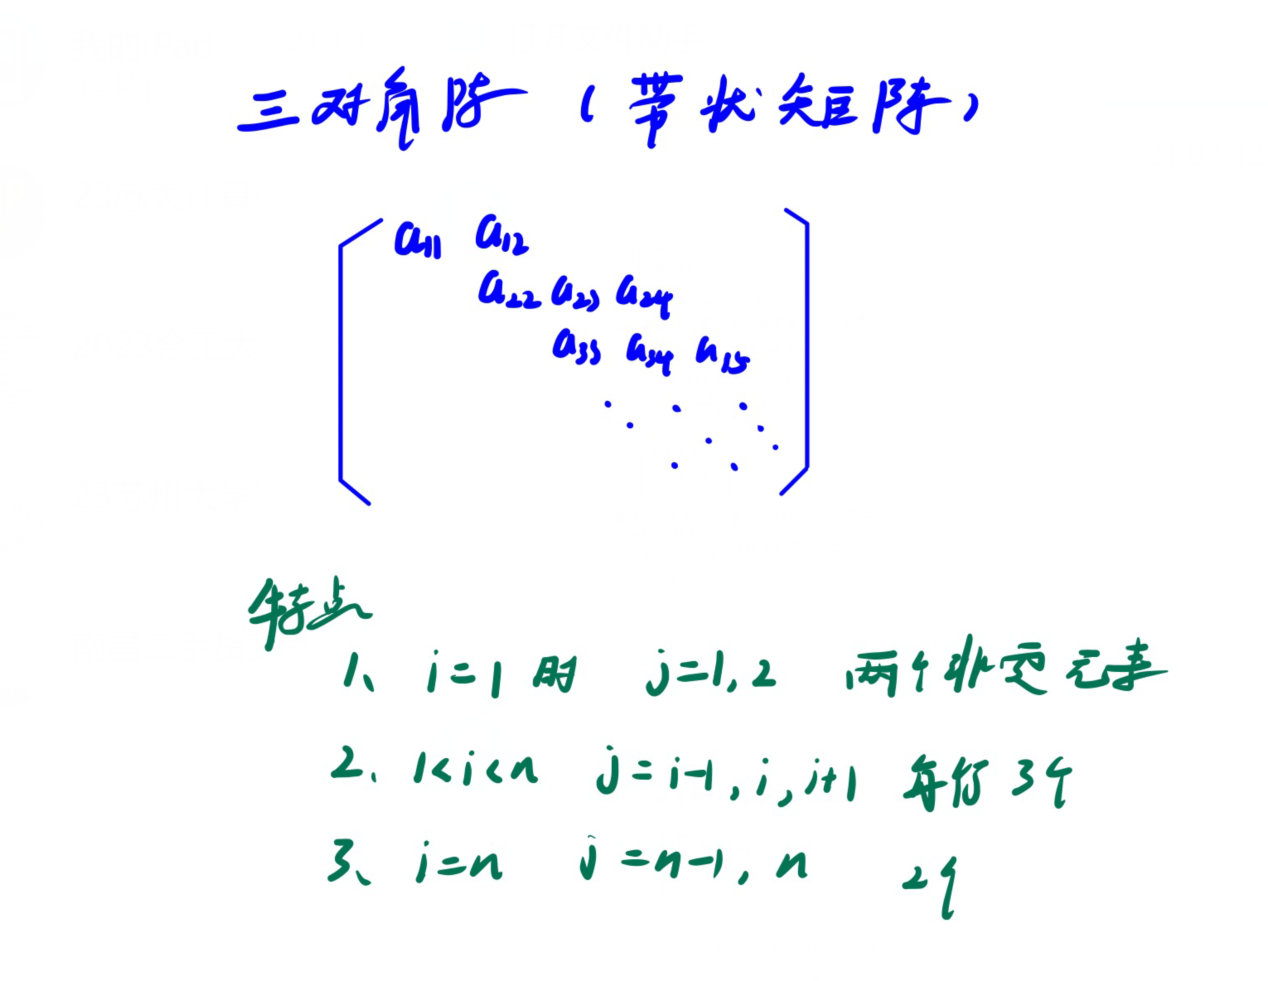 三对角阵（带状矩阵）
a11 a12
a22 a23 a24
a33 a34 a35
特点
1、i=1时 j=1,2 两个非零元素
2、1<i<n j=i-1,i,i+1 每行3个
3、i=n j=n-1,n 2个